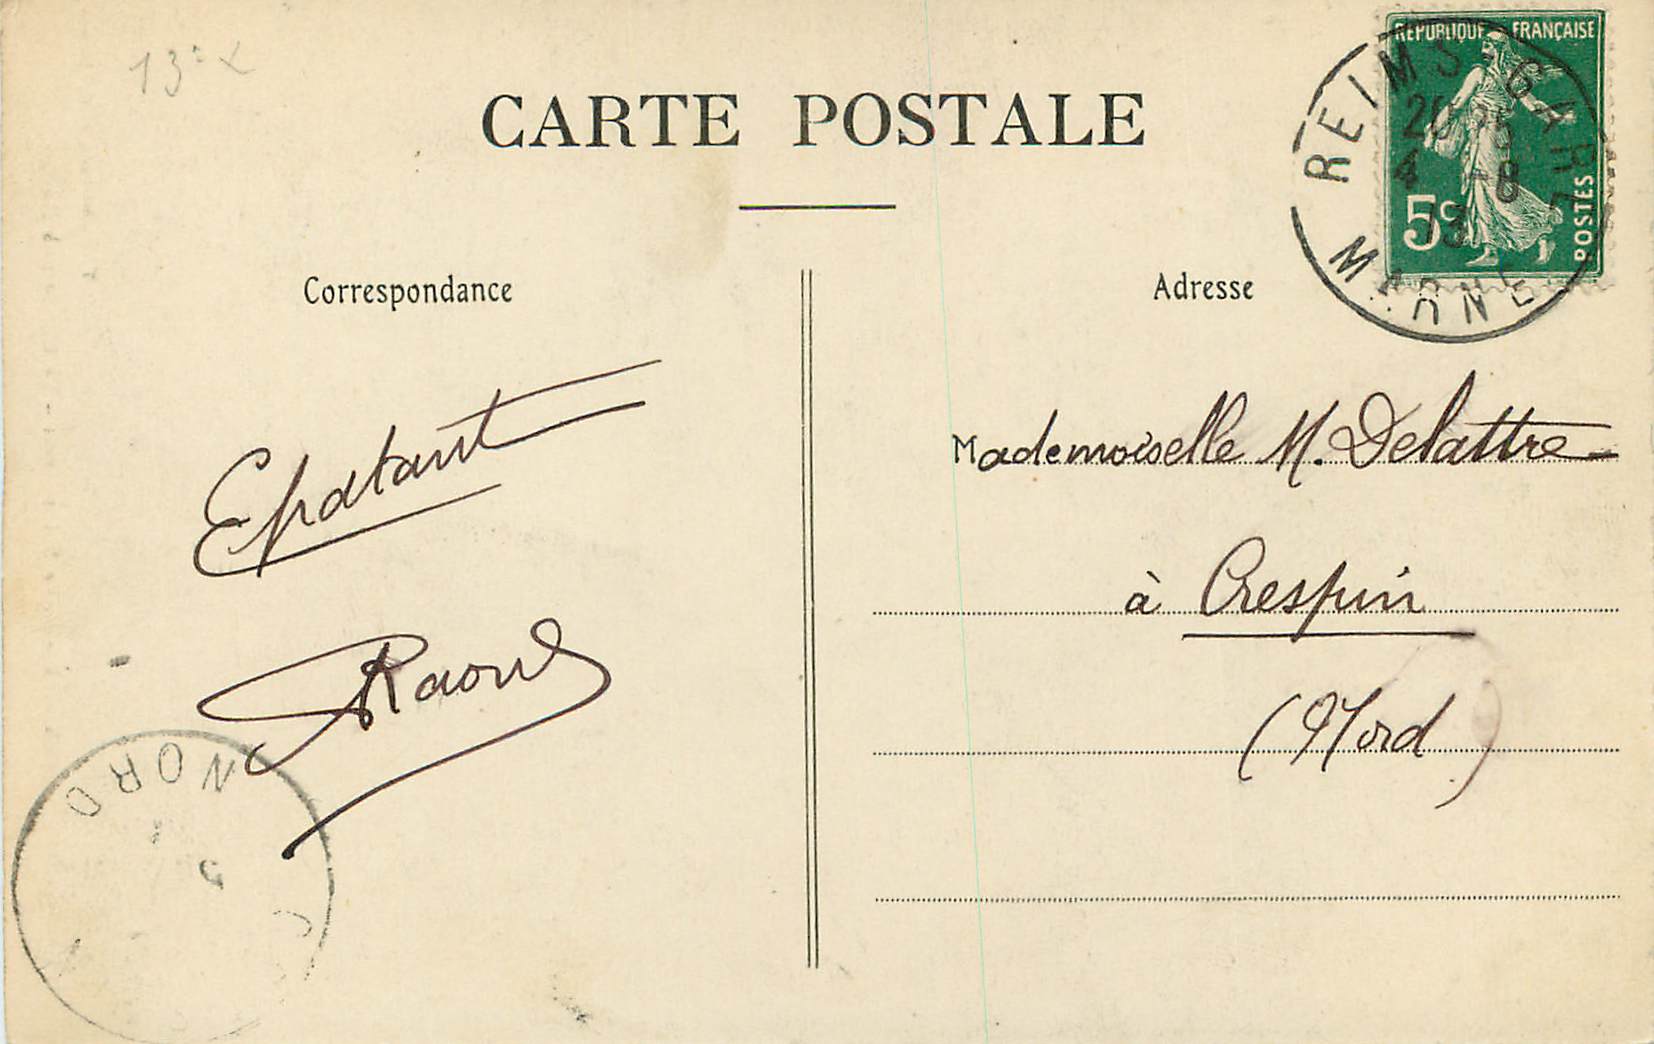 13
CARTE POSTALE
REPUBLIQUE FRANÇAISE
POSTES
5c
REIMS-GARE
4 -8
13
MARNE
Correspondance
Adresse
Epatant
Raoul
Mademoiselle M. Delattre
à Crespin
(Nord)
NORD
5